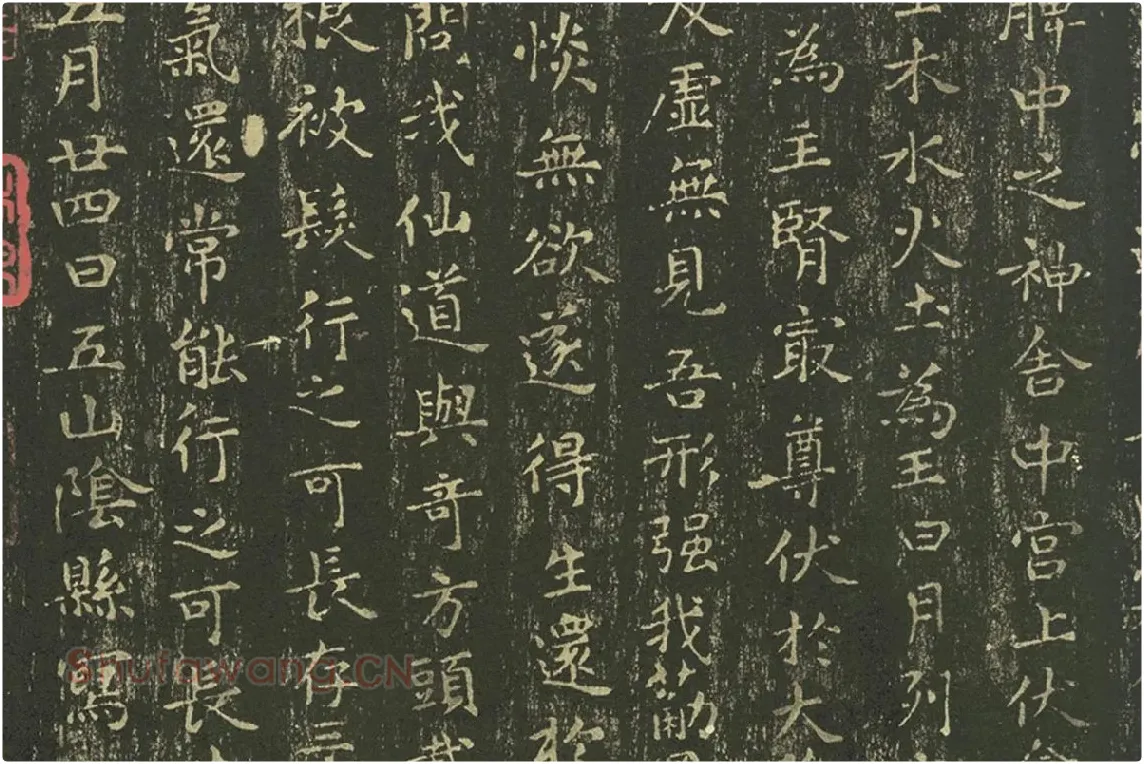 脾中之神舍中宫上伏
木水火土為王日月列
為主腎㝡尊伏於大
虛無見吾形强我筋
惔無欲遂得生還於
問我仙道與奇方頭
根被髮行之可長存三
氣還常能行之可長
五月廿四日五山陰縣寫
Shufawang.CN